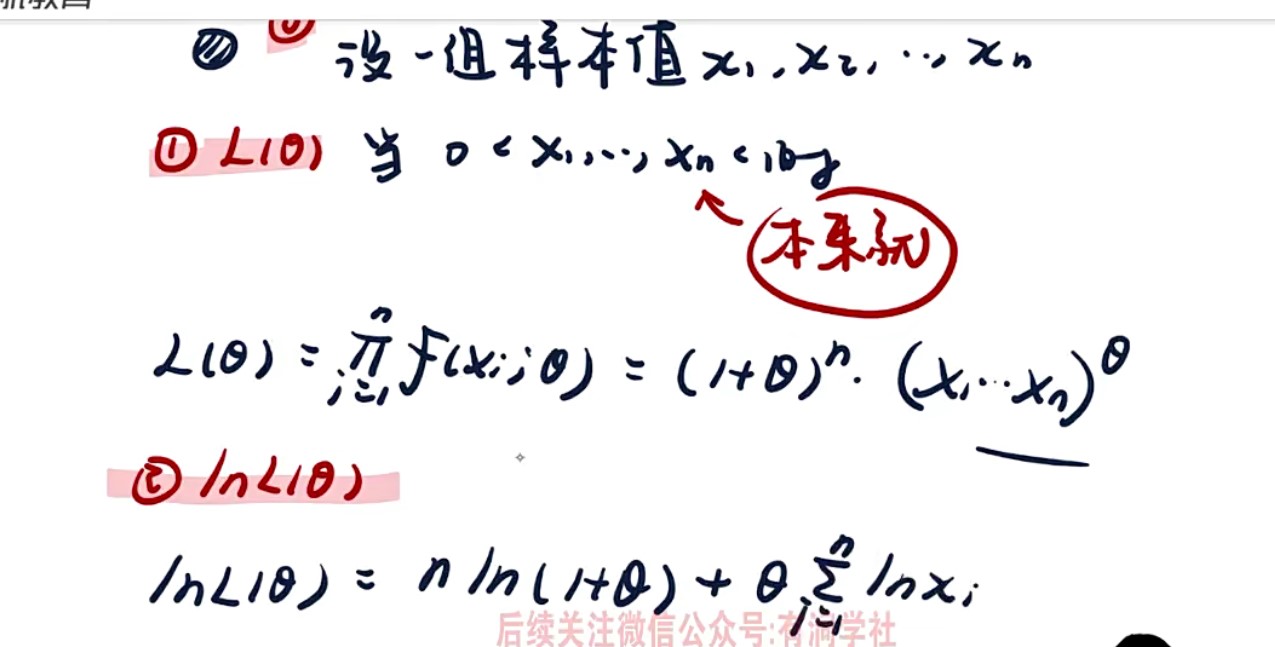 ② 设一组样本值 x₁, x₂, …, xₙ
① L(θ) 当 0 < x₁, …, xₙ < 1时
本来就
L(θ) = ∏ᵢ₌₁ⁿ f(xᵢ; θ) = (1+θ)ⁿ · (x₁⋯xₙ)^θ
② lnL(θ)
lnL(θ) = n ln(1+θ) + θ ∑ᵢ₌₁ⁿ ln xᵢ
后续关注微信公众号:有洞学社